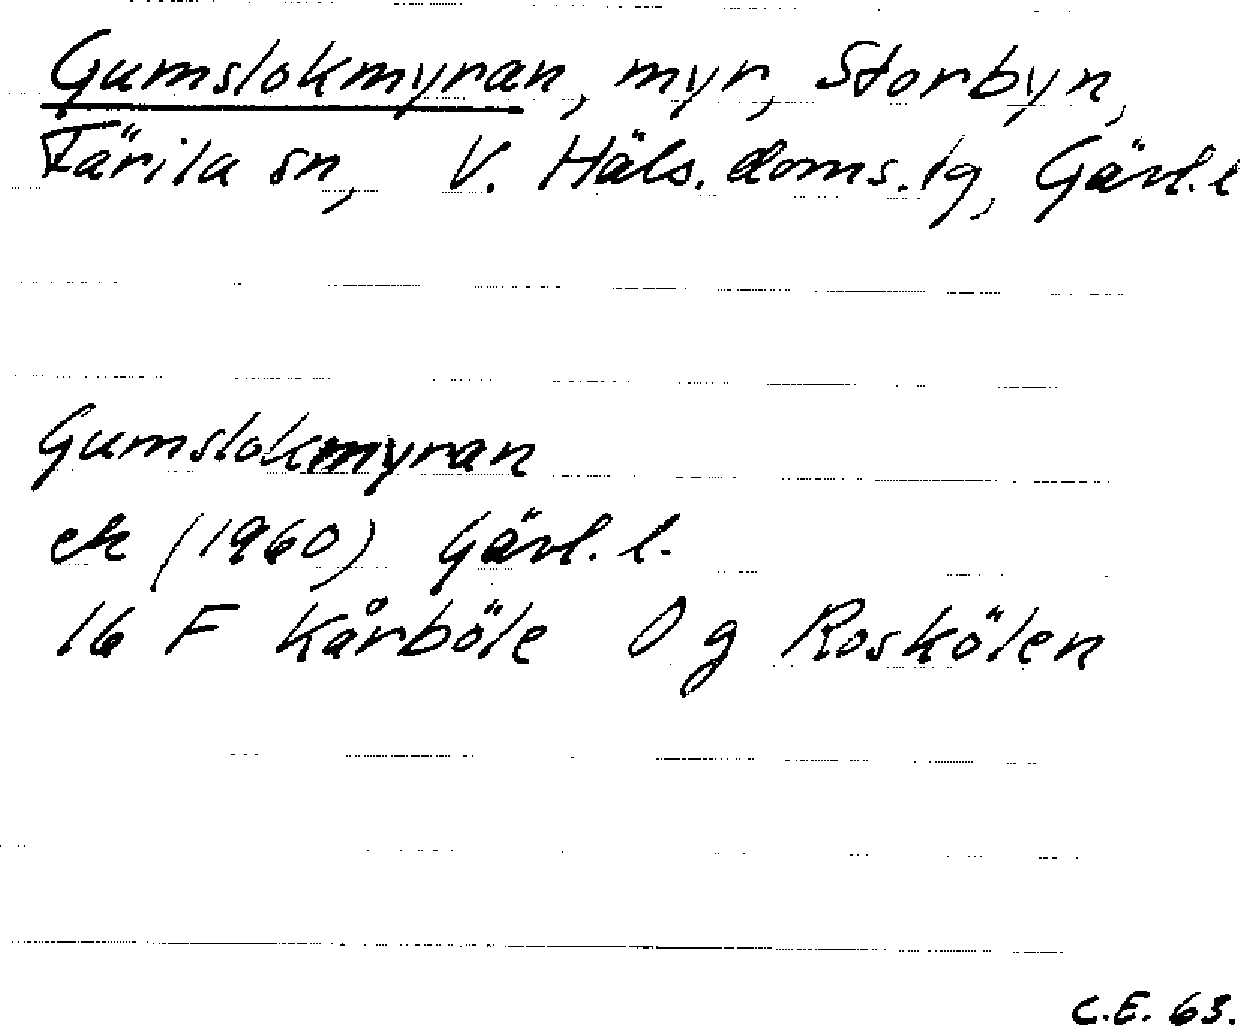 Gumslokmyran, myr, Storbyn,
Färila sn, V. Häls. doms.lg, Gävl. l
Gumslokmyran
ek (1960) Gävl. l.
16 F Kårböle 0 g Roskölen
C.E. 63.